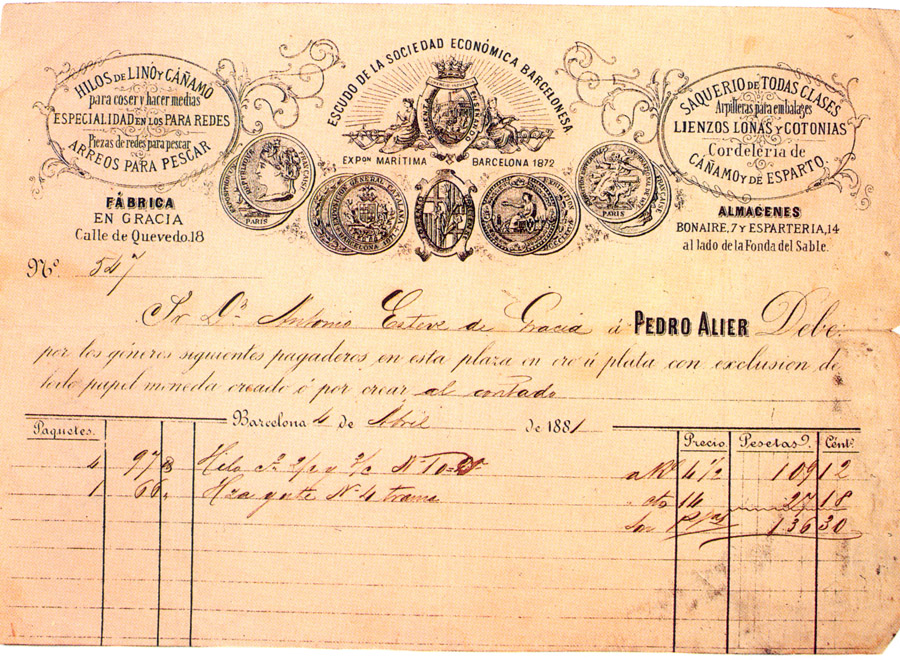 HILOS DE LINO Y CÁÑAMO
para coser y hacer medias
ESPECIALIDAD EN LOS PARA REDES
Piezas de redes para pescar
ARREOS PARA PESCAR
FÁBRICA
EN GRACIA
Calle de Quevedo. 18
ESCUDO DE LA SOCIEDAD ECONÓMICA BARCELONESA
EXPON MARÍTIMA BARCELONA 1872
PARIS
EXPOSICION GENERAL CATALANA
PARIS
SAQUERIO DE TODAS CLASES
Arpilleras para embalages
LIENZOS LONAS Y COTONIAS
Cordeleria de
CÁÑAMO Y DE ESPARTO.
ALMACENES
BONAIRE, 7 Y ESPARTERIA, 14
al lado de la Fonda del Sable.
No. 547
Sr. Dn. Antonio Esteve de Gracia á PEDRO ALIER Debe:
por los géneros siguientes pagaderos en esta plaza en oro ú plata con exclusion de
todo papel moneda creado ó por crear al contado
Barcelona 4 de Abril de 1881
Paquetes. Precio. Pesetas Cents
4 97 Hilo 4½ 109 12
1 66 Hza yute N. 4 trama 14 27 18
Son Ptas 136 30